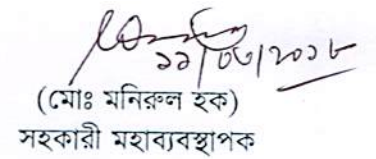 ১১/০৬/২০১৮
(মোঃ মনিরুল হক)
সহকারী মহাব্যবস্থাপক